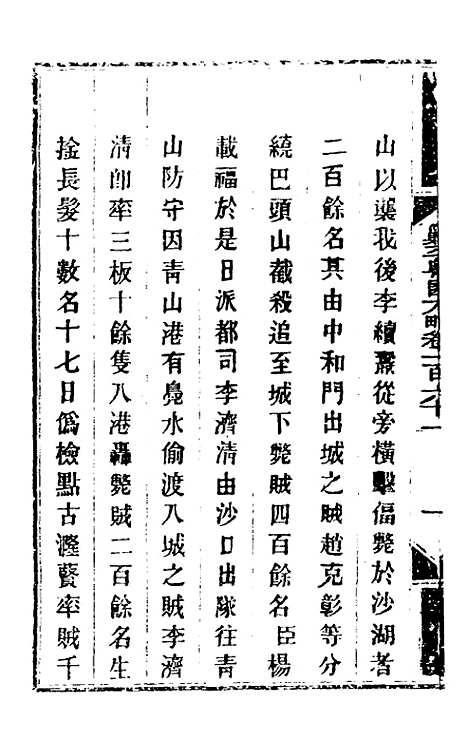 山以襲我後李續燾從旁橫擊偪斃於沙湖者
二百餘名其由中和門出城之賊趙克彰等分
繞巴頭山截殺追至城下斃賊四百餘名臣楊
載福於是日派都司李濟清由沙口出隊往青
山防守因青山港有鳧水偷渡入城之賊李濟
清即率三板十餘隻入港轟斃賊二百餘名生
擒長髮十數名十七日僞檢點古瀅賢率賊千